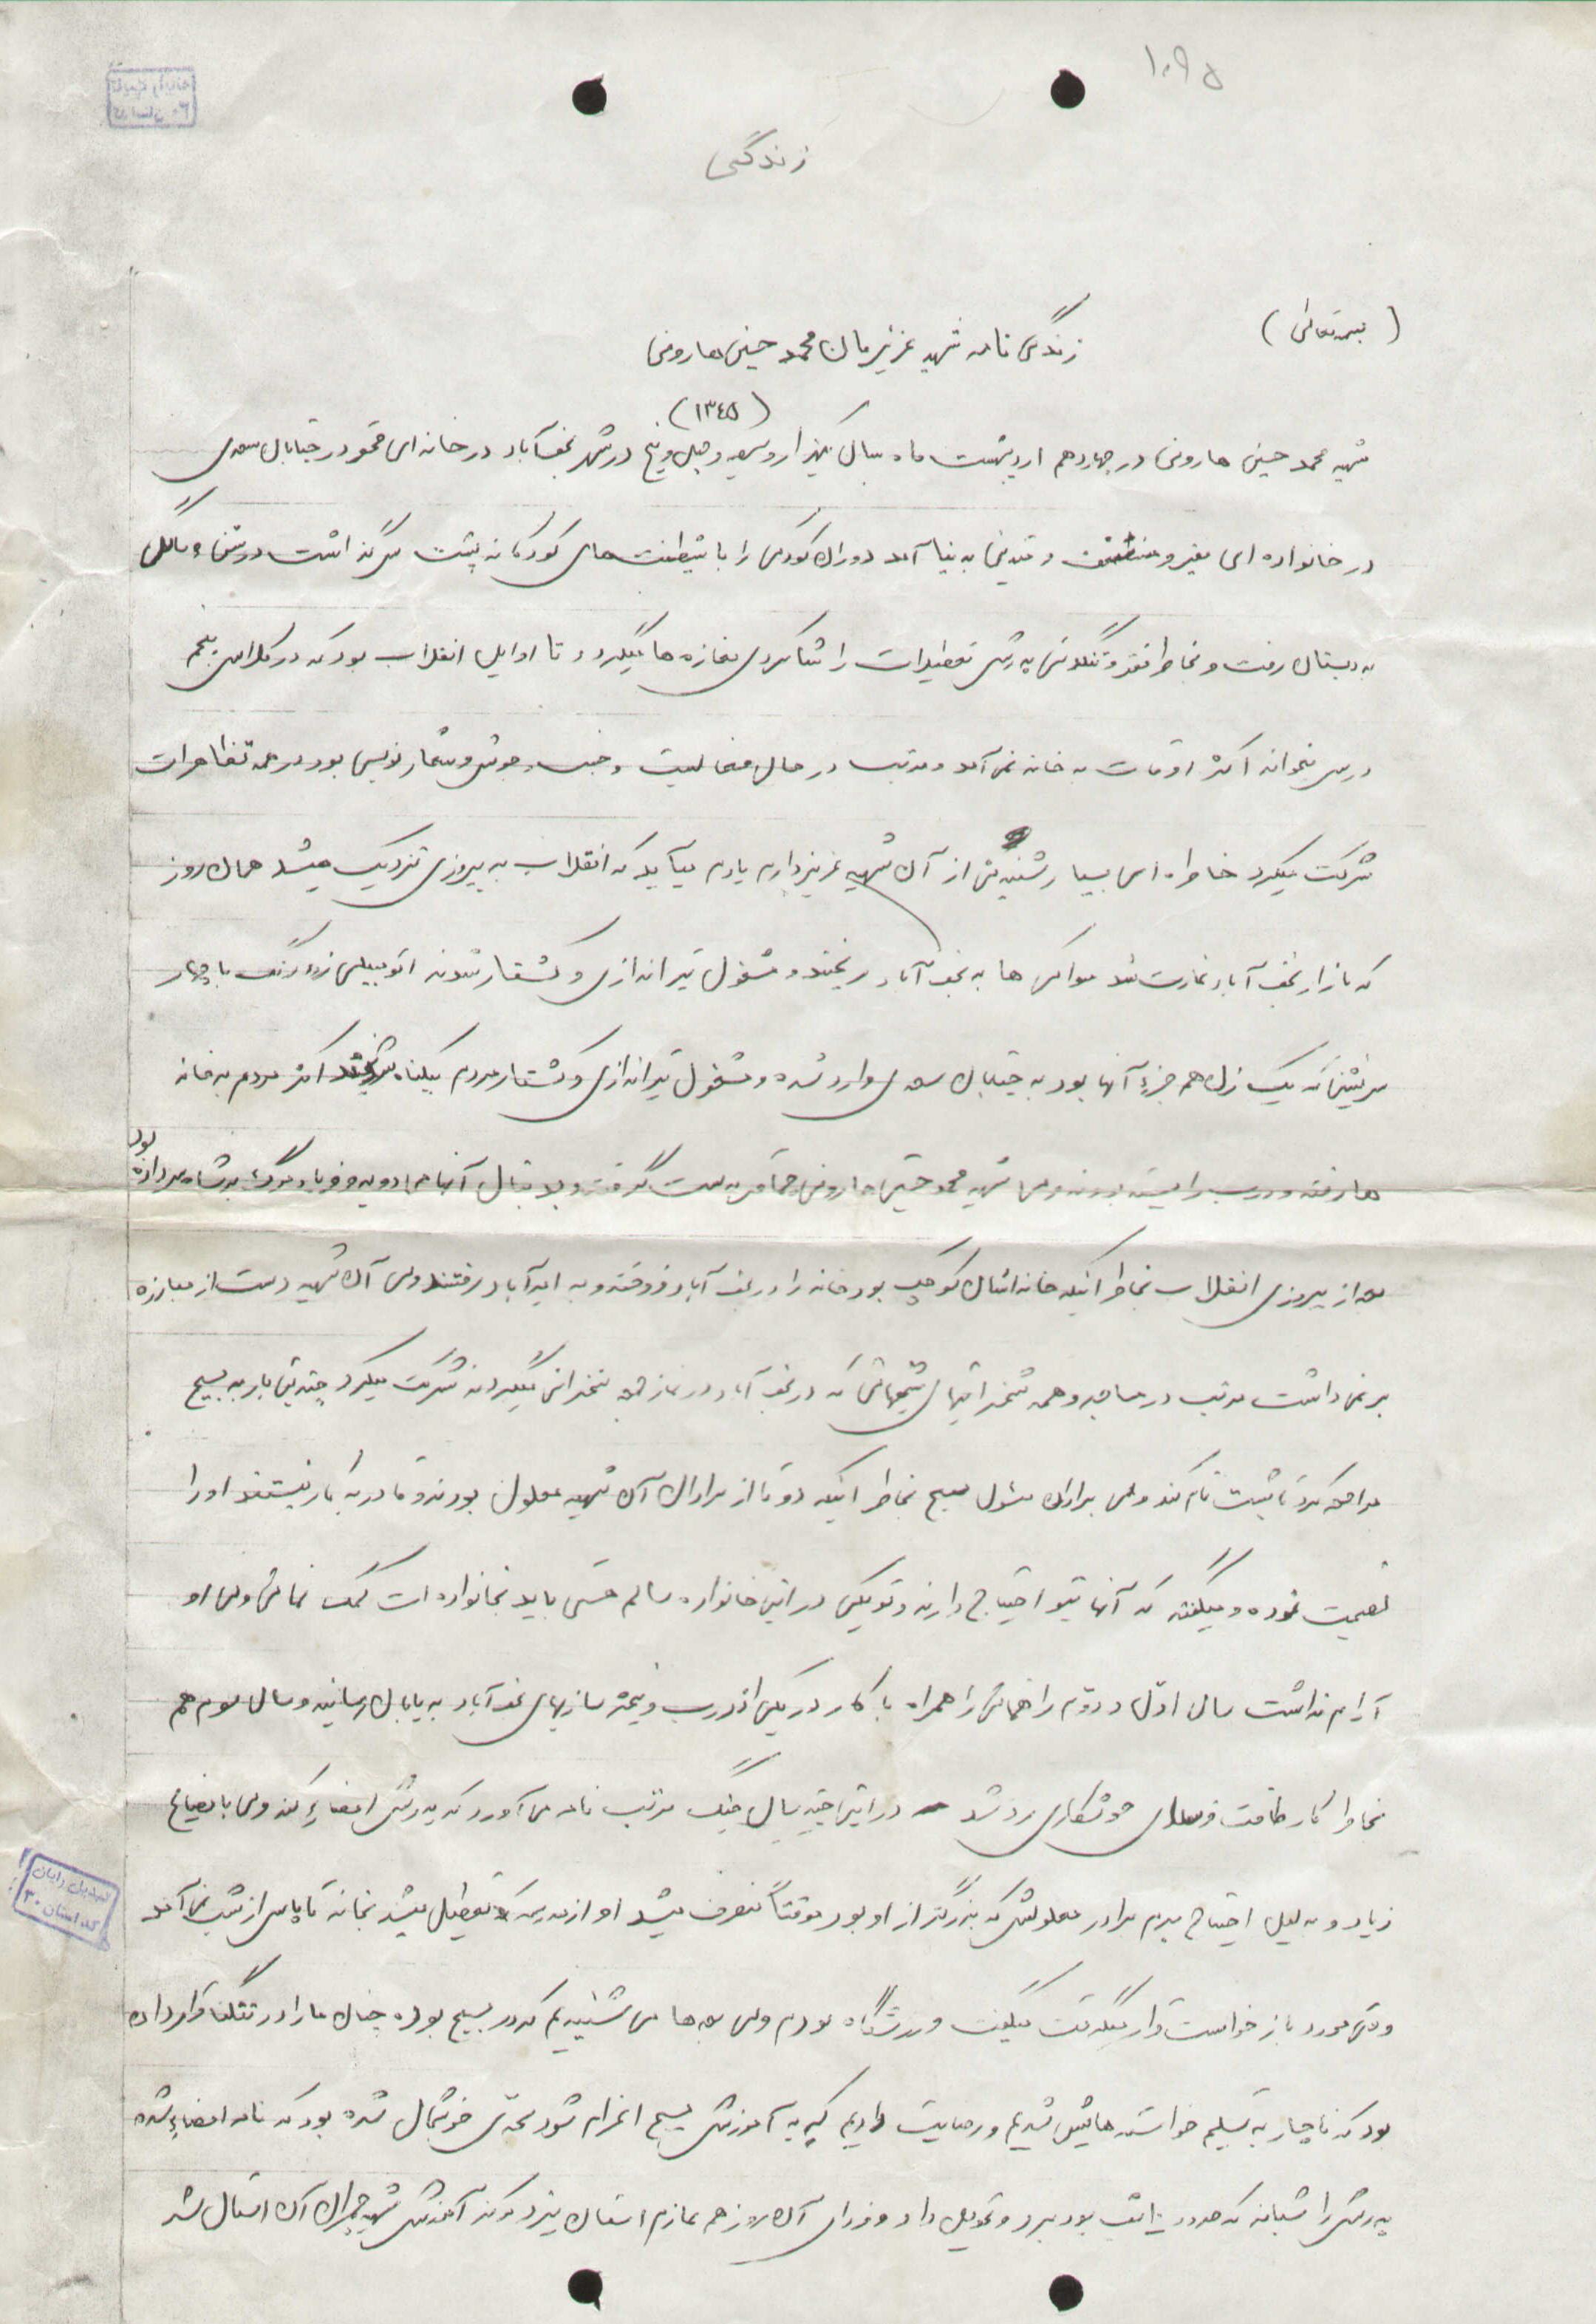 ۱۰۹۵
زندگی
(بسمه تعالی)
زندگی نامه شهید عزیزمان محمد حسین هارونی
(۱۳۴۵)
شهید محمد حسین هارونی در چهاردهم اردیبهشت ماه سال یکهزار و سیصد و چهل و پنج در شهر نجف آباد در خانه ای محقر در خیابان سعدی
در خانواده ای فقیر و مستضعف و متدین به دنیا آمد دوران کودکی را با شیطنت های کودکانه پشت سر گذاشت در شش سالگی
به دبستان رفت و بخاطر فقر و تنگدستی پدرش تعطیلات را شاگردی مغازه ها میکرد و تا اوایل انقلاب بود که در کلاس پنجم
درس میخواند اکثر اوقات به خانه نمی آمد و مرتب در حال فعالیت و جنب و جوش و شعار نویسی بود در همه تظاهرات
شرکت میکرد خاطره ای بسیار شیرین از آن شهید عزیز دارم یادم میآید که انقلاب به پیروزی نزدیک میشد همان روز
که بازار نجف آباد غارت شد ساواکی ها به نجف آباد ریختند و مشغول تیراندازی و کشتار شدند اتومبیلی زرد رنگ با چهار
سرنشین که یک زن هم جزء آنها بود به خیابان سعدی وارد شده و مشغول تیراندازی و کشتار مردم بیگناه شدند اکثر مردم به خانه
ها رفته و درب را بسته بودند ولی شهید محمد حسین هارونی چماق به دست گرفته و به دنبال آنها میدوید و فریاد مرگ بر شاه سر داده بود
بعد از پیروزی انقلاب بخاطر اینکه خانه اشان کوچک بود خانه را در نجف آباد فروخته و به امیرآباد رفتند ولی آن شهید دست از مبارزه
بر نمی داشت مرتب در مساجد و همه سخنرانیهای که در نجف آباد در نماز جمعه سخنرانی میکردند شرکت میکرد چندین بار به بسیج
مراجعه کرد تا ثبت نام کند ولی برادران مسئول بسیج بخاطر اینکه دو تا از برادران آن شهید معلول بودند و قادر به کار نیستند او را
نصیحت نموده و میگفتند که آنها بتو احتیاج دارند و تو یکی در این خانواده سالم هستی باید بخانواده ات کمک نمائی ولی او
آرام نداشت سال اول و دوم راهنمائی را همراه با کار در یکی از درب و پنجره سازیهای نجف آباد به پایان رسانید و سال سوم هم
بخاطر کار طاقت فرسای جوشکاری رد شد در این چند سال جنگ مرتب نامه می آورد که پدرش امضاء کند ولی با نصایح
زیاد و به دلیل احتیاج مبرم برادر معلولش که بزرگتر از او بود موقتاً منصرف میشد او از مدرسه که تعطیل میشد بخانه تا پاسی از شب نمی آمد
وقتی مورد بازخواست قرار میگرفت میگفت ورزشگاه بودم ولی بعدها می شنیدیم که در بسیج بوده چنان ما را در تنگنا قرار داده
بود که ناچار به تسلیم خواسته هایش شدیم و رضایت دادیم که به آموزش بسیج اعزام شود بحدی خوشحال شده بود که نامه امضاء شده
پدرش را شبانه که حدود ده شب بود برد و تحویل داد و فردای آن روز هم عازم استان یزد مرکز آموزش شهید چمران آن استان شد
تبدیل رایان
کد استان ۳۰